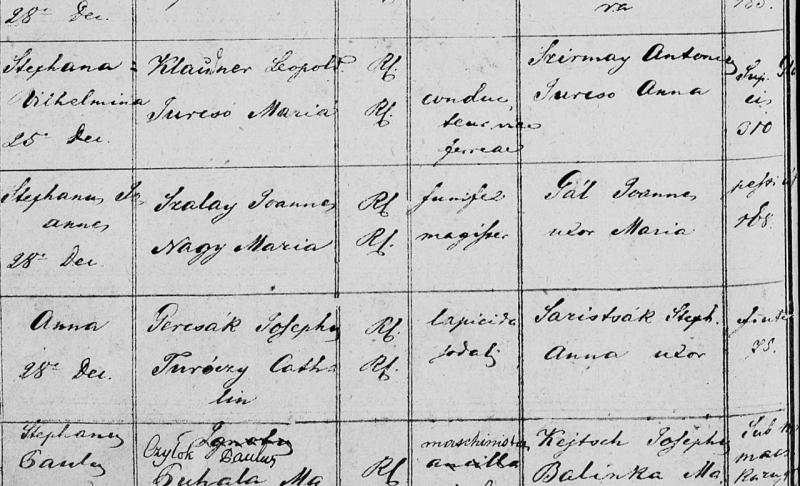 28ª Dec.
Stephana =
Vilhelmina
25ª Dec.
Klauner Leopold
Turcsó Maria
Rf.
Rf.
conduc,
teur viae
ferreae
Szirmay Antonius
Turcso Anna
310
Stephanus Jo,
annes
28ª Dec.
Szalay Joannes
Nagy Maria
Rf.
Rf.
funifex
magister
Gál Joannes
uxor Maria
Anna
28ª Dec.
Percsák Josephus
Turóczy Catha
lin
Rf.
Rf.
lapicida
sodalis
Saristsák Steph.
Anna uxor
75.
Stephanus
Paulus
Ignatius
Czyłok Paulus
Puhala Ma
Rf.
maschinista
ancilla
Kejtsch Josephus
Balinka Ma